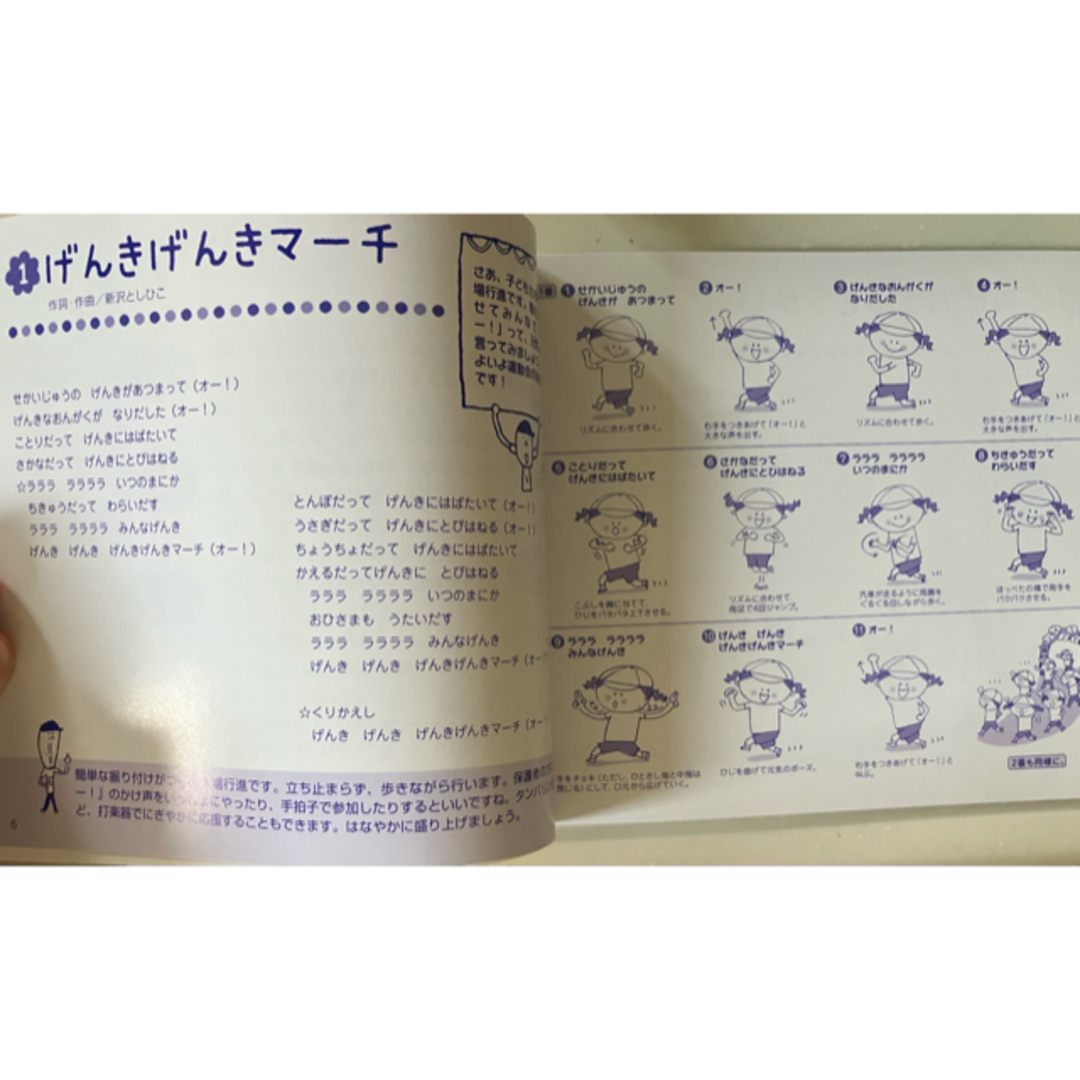 1 げんきげんきマーチ
作詞・作曲／新沢としひこ
さあ、子ども
場行進です。
せてみんなで
ー！」って、
言ってみましょ
よいよ運動会の
です！
せかいじゅうの げんきがあつまって（オー！）
げんきなおんがくが なりだした（オー！）
ことりだって げんきにはばたいて
さかなだって げんきにとびはねる
☆ラララ ララララ いつのまにか
ちきゅうだって わらいだす
ラララ ララララ みんなげんき
げんき げんき げんきげんきマーチ（オー！）
とんぼだって げんきにはばたいて（オー！）
うさぎだって げんきにとびはねる（オー！）
ちょうちょだって げんきにはばたいて
かえるだってげんきに とびはねる
ラララ ララララ いつのまにか
おひさまも うたいだす
ラララ ララララ みんなげんき
げんき げんき げんきげんきマーチ（オー
☆くりかえし
げんき げんき げんきげんきマーチ（オー
簡単な振り付けが 場行進です。立ち止まらず、歩きながら行います。保護者の
ー！」のかけ声をい にやったり、手拍子で参加したりするといいですね。タンバリン
ど、打楽器でにぎやかに応援することもできます。はなやかに盛り上げましょう。
6
番
1 せかいじゅうの
げんきが あつまって
リズムに合わせて歩く。
2 オー！
右手をつきあげて「オー！」と
大きな声を出す。
3 げんきなおんがくが
なりだした
リズムに合わせて歩く。
4 オー！
右手をつきあげて「オー！」と
大きな声を出す。
5 ことりだって
げんきにはばたいて
こぶしを胸に当てて、
ひじをパタパタ上下させる。
6 さかなだって
げんきにとびはねる
リズムに合わせて、
両足で4回ジャンプ。
7 ラララ ララララ
いつのまにか
汽車が走るように両腕を
ぐるぐる回しながら歩く。
8 ちきゅうだって
わらいだす
ほっぺたの横で両手を
パクパクさせる。
9 ラララ ララララ
みんなげんき
手をチョキ（ただし、ひとさし指と中指は
閉じる）にして、口元から広げていく。
10 げんき げんき
げんきげんきマーチ
ひじを曲げて元気のポーズ。
11 オー！
右手をつきあげて「オー！」と
叫ぶ。
2番も同様に。